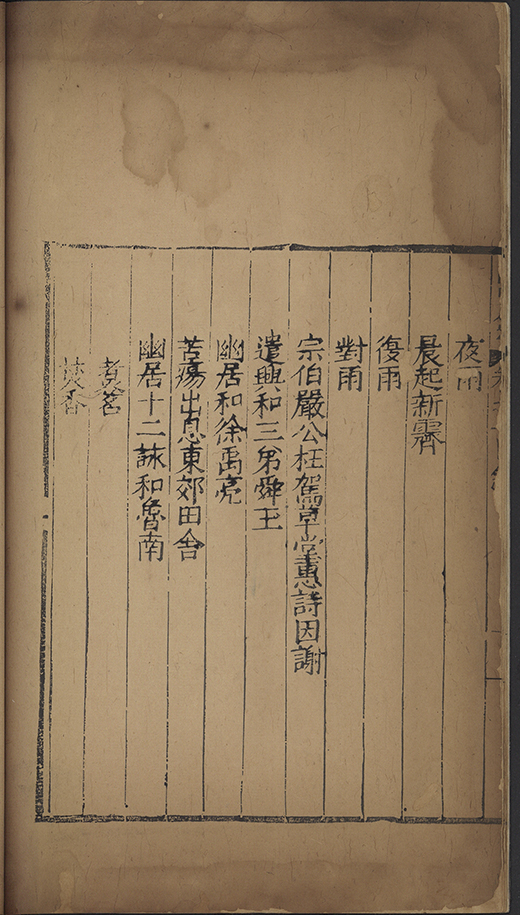 夜雨
晨起新霽
復雨
對雨
宗伯嚴公枉駕草堂惠詩因謝
遣興和三弟舜玉
幽居和徐禹亮
苦瘍出息東郊田舍
幽居十二詠和魯南
煑茗
焚香